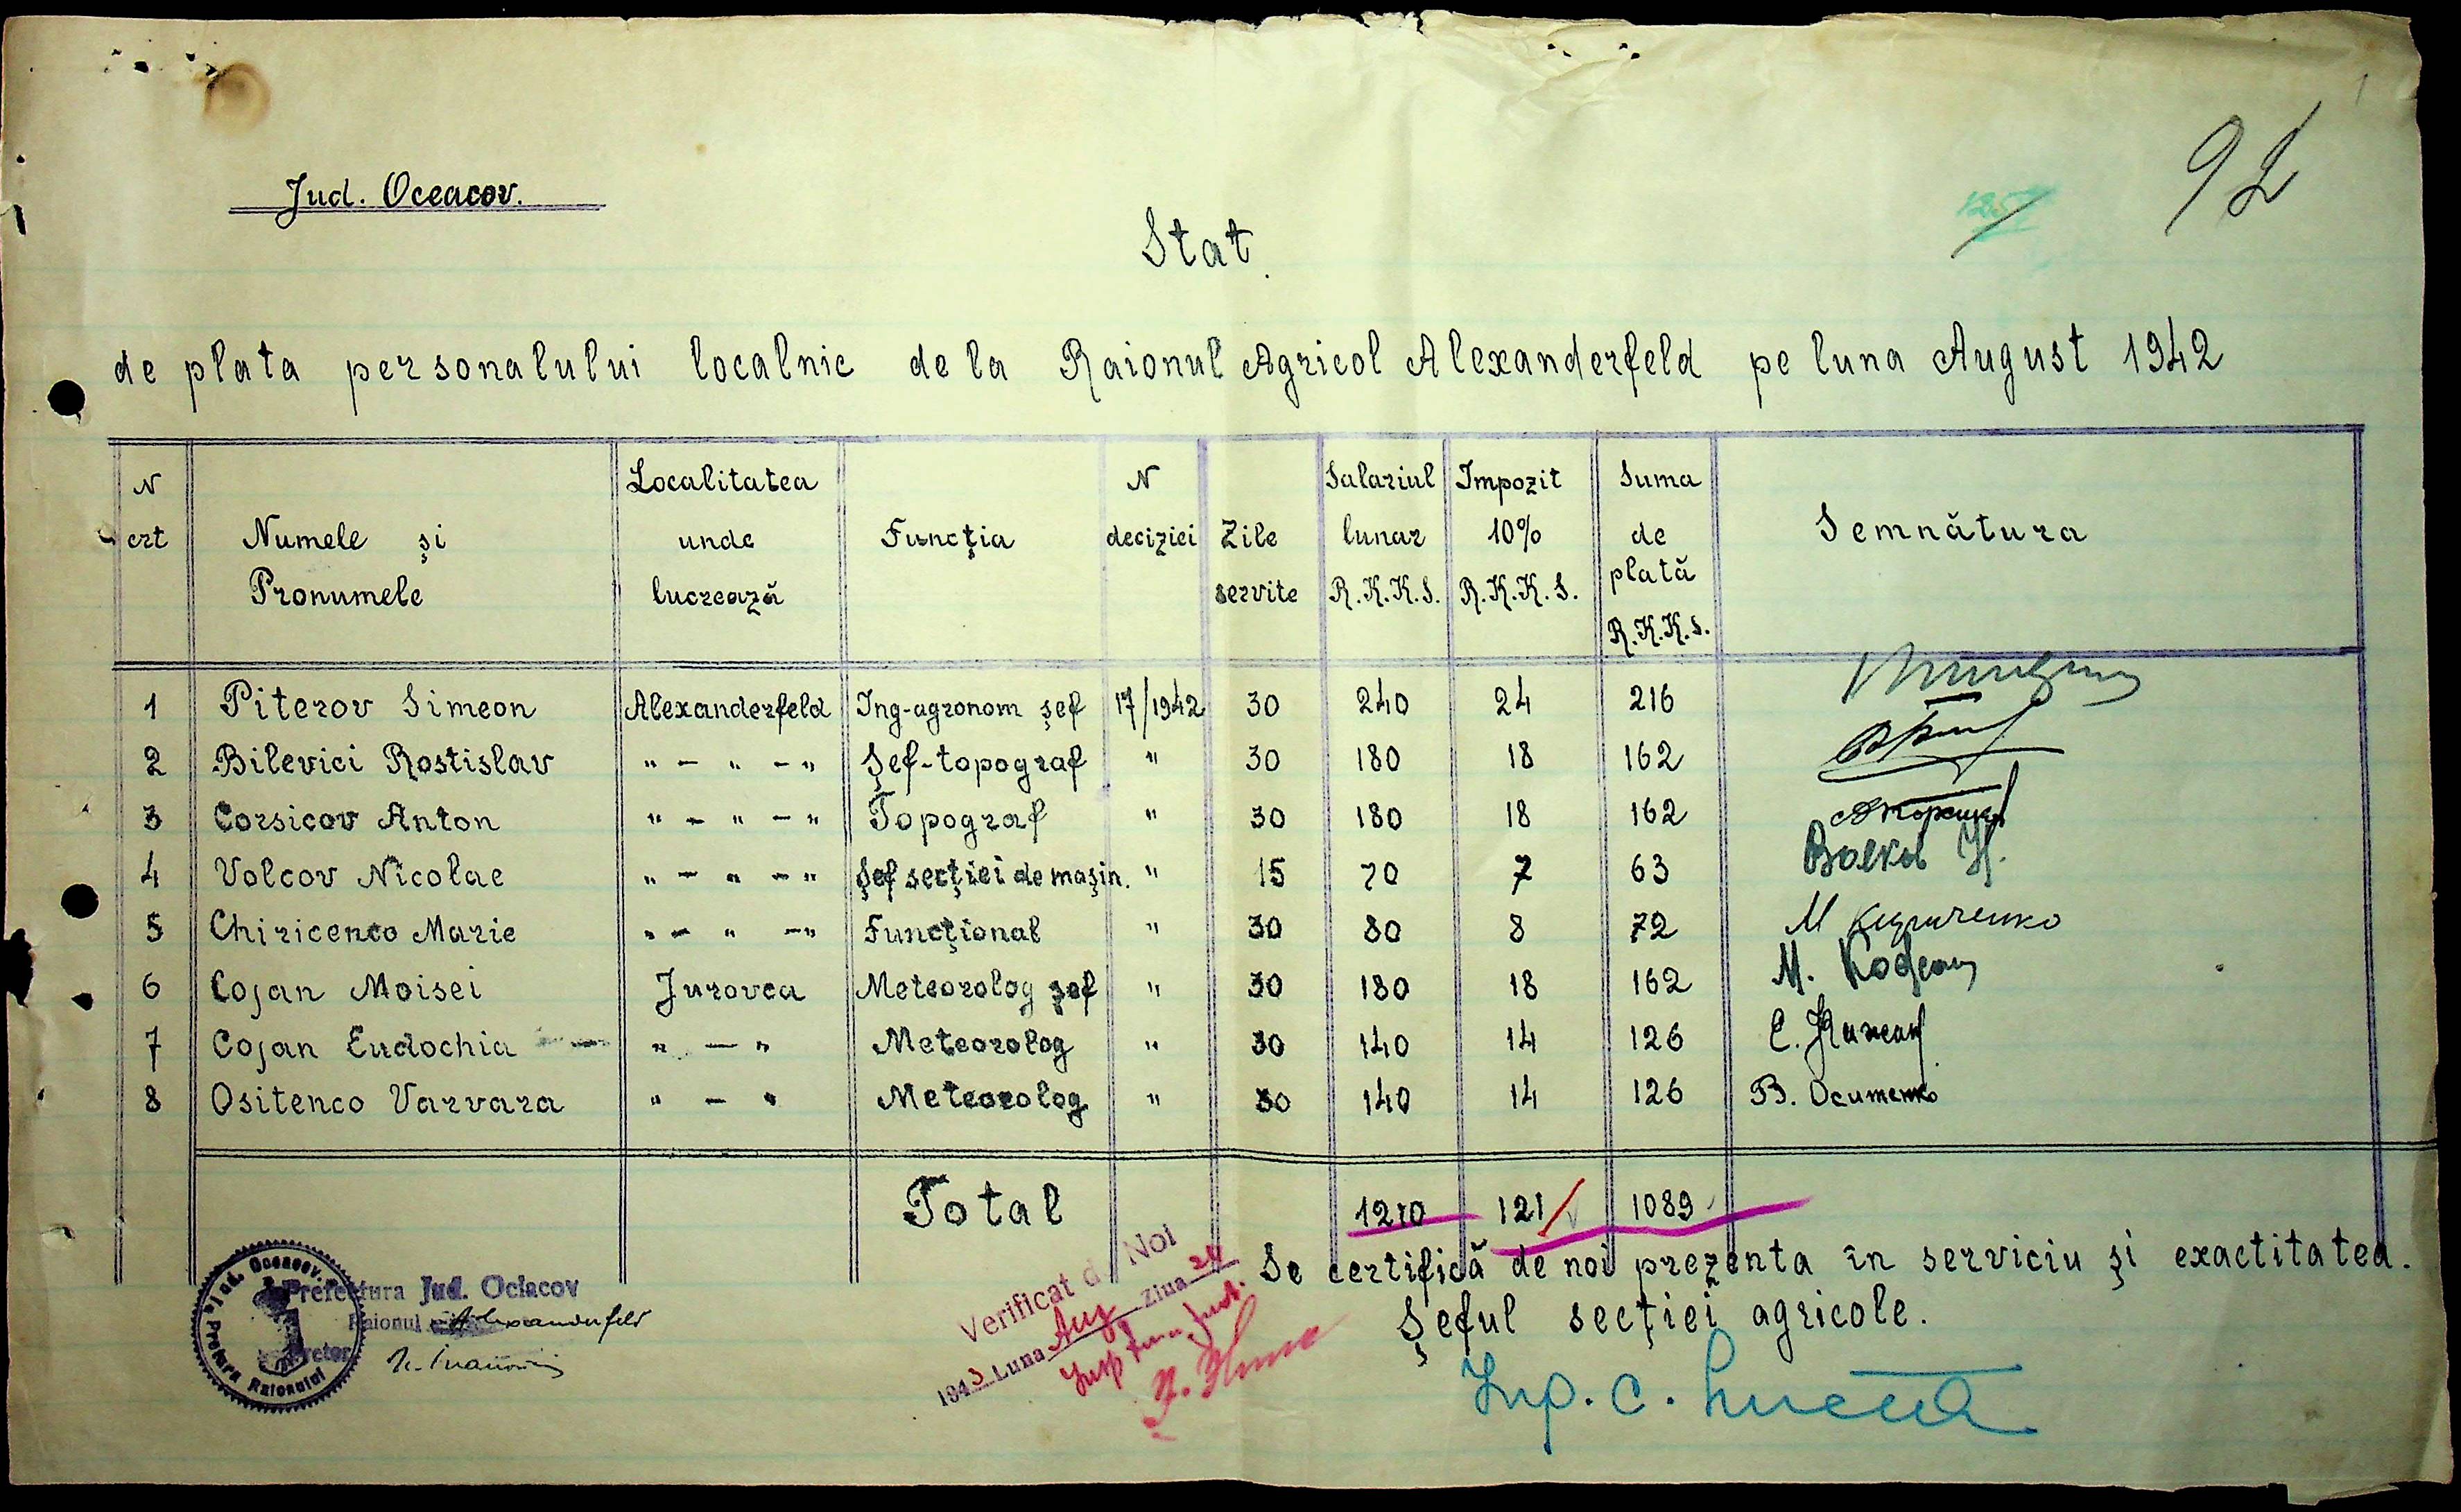 92
125
Jud. Oceacov.
Stat.
de plata personalului localnic de la Raionul Agricol Alexanderfeld pe luna August 1942
N crt | Numele și Pronumele | Localitatea unde lucrează | Funcția | N deciziei | Zile servite | Salariul lunar R.K.K.S. | Impozit 10% R.K.K.S. | Suma de plată R.K.K.S. | Semnătura
1 Piterov Simeon Alexanderfeld Ing-agronom șef 17/1942 30 240 24 216
2 Bilevici Rostislav " - " - " Șef-topograf " 30 180 18 162
3 Corsicov Anton " - " - " Topograf " 30 180 18 162
4 Volcov Nicolae " - " - " Șef secției de mașin. " 15 70 7 63 Волков Н.
5 Chiricenco Marie " - " - " Funcțional " 30 80 8 72 М Кириченко
6 Cojan Moisei Jurovca Meteorolog șef " 30 180 18 162 М. Кожан
7 Cojan Eudochia " - " Meteorolog " 30 140 14 126 Е.
8 Ositenco Varvara " - " Meteorolog " 30 140 14 126 В. Оситенко
Total 1210 121 1089
Se certifică de noi prezenta în serviciu și exactitatea.
Șeful secției agricole.
Prefectura Jud. Ociacov
Raionul Alexanderfeld
Pretor
Jud. Oceacov.
Pretura Raionului
Verificat de Noi
1943 Luna Aug Ziua 24